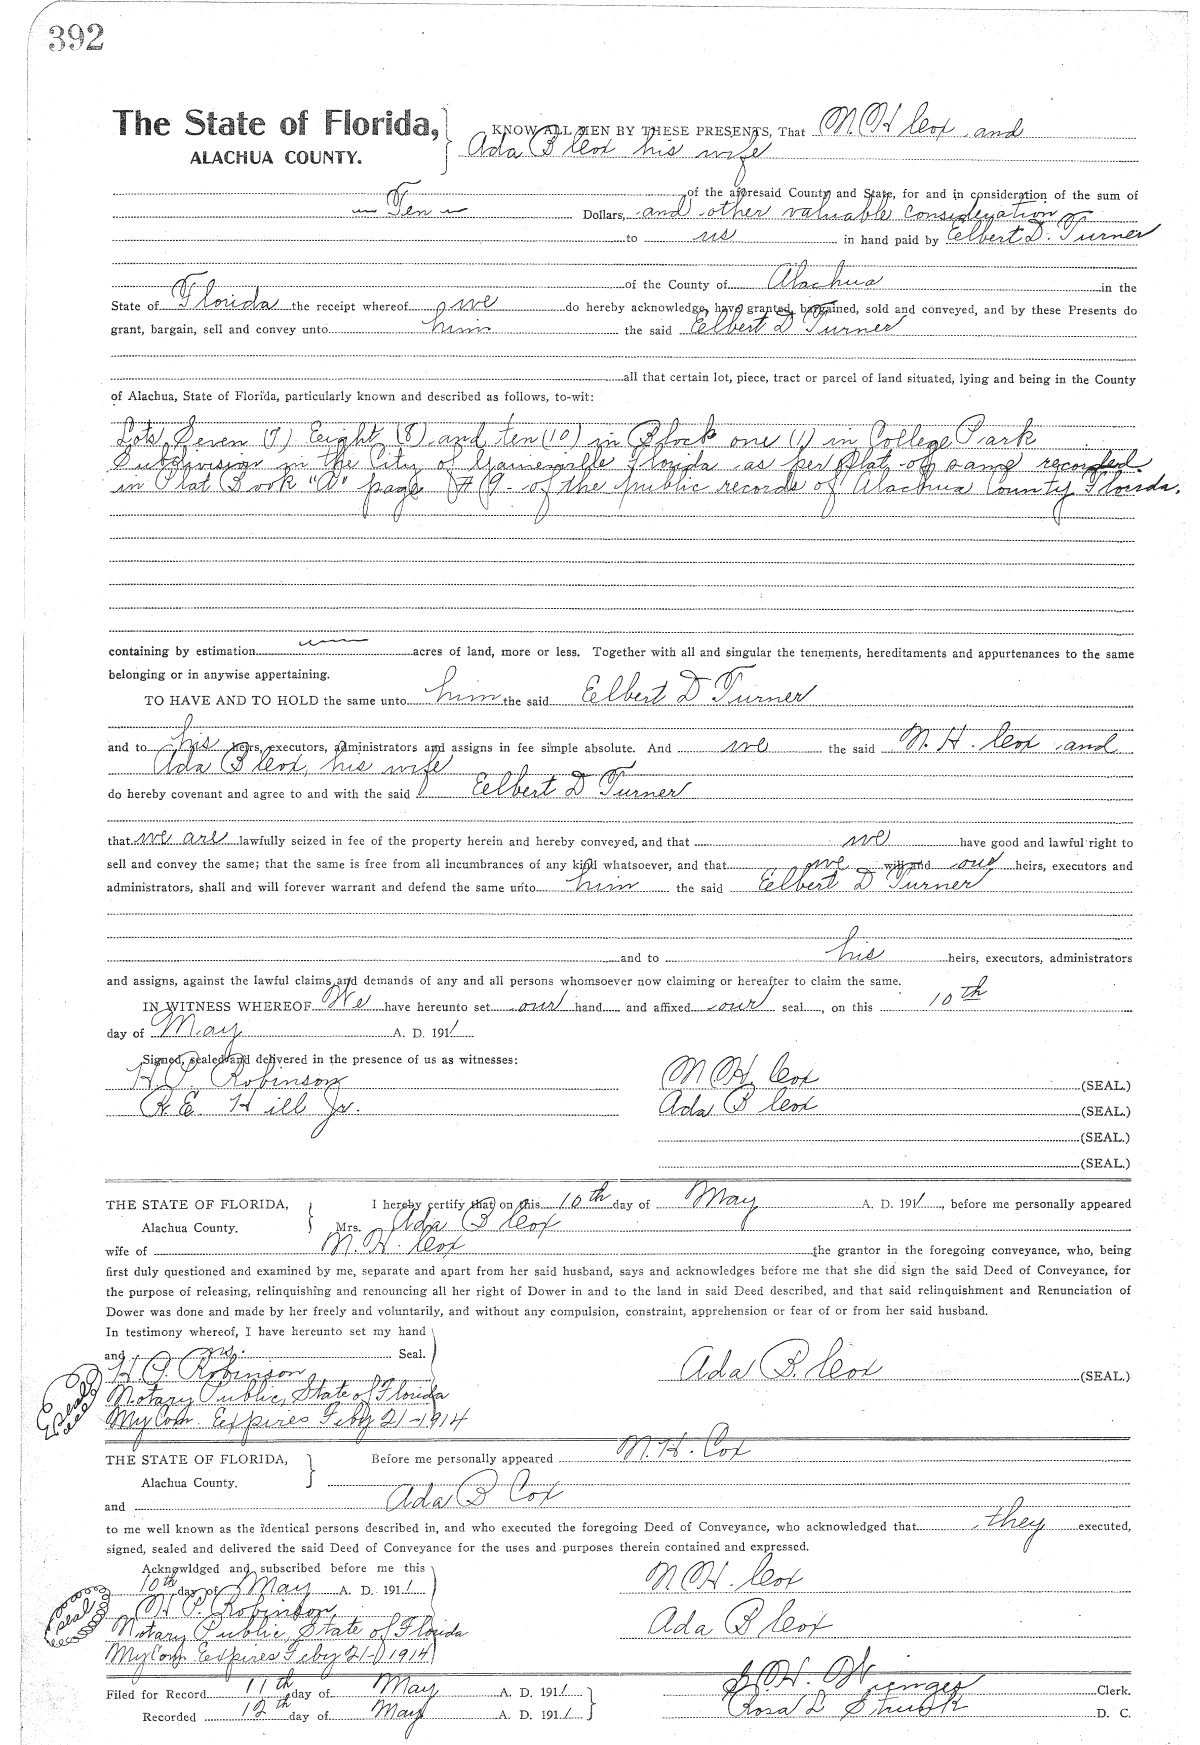 392
The State of Florida, KNOW ALL MEN BY THESE PRESENTS, That M H Cox and
ALACHUA COUNTY. Ada B Cox his wife
of the aforesaid County and State, for and in consideration of the sum of
Ten Dollars, and other valuable consideration
to us in hand paid by Elbert D. Turner
of the County of Alachua in the
State of Florida the receipt whereof we do hereby acknowledge, have granted, bargained, sold and conveyed, and by these Presents do
grant, bargain, sell and convey unto him the said Elbert D Turner
all that certain lot, piece, tract or parcel of land situated, lying and being in the County
of Alachua, State of Florida, particularly known and described as follows, to-wit:
Lots Seven (7) Eight (8) and ten (10) in Block one (1) in College Park
Subdivision in the City of Gainesville Florida as per Plat of same recorded
in Plat Book "A" page # 9 - of the public records of Alachua County Florida.
containing by estimation acres of land, more or less. Together with all and singular the tenements, hereditaments and appurtenances to the same
belonging or in anywise appertaining.
TO HAVE AND TO HOLD the same unto him the said Elbert D Turner
and to his heirs, executors, administrators and assigns in fee simple absolute. And we the said M. H. Cox and
Ada B Cox, his wife
do hereby covenant and agree to and with the said Elbert D Turner
that we are lawfully seized in fee of the property herein and hereby conveyed, and that we have good and lawful right to
sell and convey the same; that the same is free from all incumbrances of any kind whatsoever, and that we will and our heirs, executors and
administrators, shall and will forever warrant and defend the same unto him the said Elbert D Turner
and to his heirs, executors, administrators
and assigns, against the lawful claims and demands of any and all persons whomsoever now claiming or hereafter to claim the same.
IN WITNESS WHEREOF We have hereunto set our hand and affixed our seal, on this 10th
day of May A. D. 1911
Signed, sealed and delivered in the presence of us as witnesses:
H. P. Robinson M H. Cox (SEAL.)
R. E. Hill Jr. Ada B Cox (SEAL.)
(SEAL.)
(SEAL.)
THE STATE OF FLORIDA, I hereby certify that on this 10th day of May A. D. 1911, before me personally appeared
Alachua County. Mrs. Ada B Cox
wife of M. H. Cox the grantor in the foregoing conveyance, who, being
first duly questioned and examined by me, separate and apart from her said husband, says and acknowledges before me that she did sign the said Deed of Conveyance, for
the purpose of releasing, relinquishing and renouncing all her right of Dower in and to the land in said Deed described, and that said relinquishment and Renunciation of
Dower was done and made by her freely and voluntarily, and without any compulsion, constraint, apprehension or fear of or from her said husband.
In testimony whereof, I have hereunto set my hand
and my Seal.
H P. Robinson Ada B. Cox (SEAL.)
Seal Notary Public, State of Florida
My Com. Expires Feby 21-1914
THE STATE OF FLORIDA, Before me personally appeared M. H. Cox
Alachua County.
and Ada B Cox
to me well known as the identical persons described in, and who executed the foregoing Deed of Conveyance, who acknowledged that they executed,
signed, sealed and delivered the said Deed of Conveyance for the uses and purposes therein contained and expressed.
Acknowldged and subscribed before me this
10th day of May A. D. 1911 M H. Cox
Seal H P. Robinson
Notary Public, State of Florida Ada B Cox
My Com Expires Feby 21-1914
Filed for Record 11th day of May A. D. 1911 S. H. Wienges Clerk.
Recorded 12th day of May A. D. 1911 Rosa L D. C.